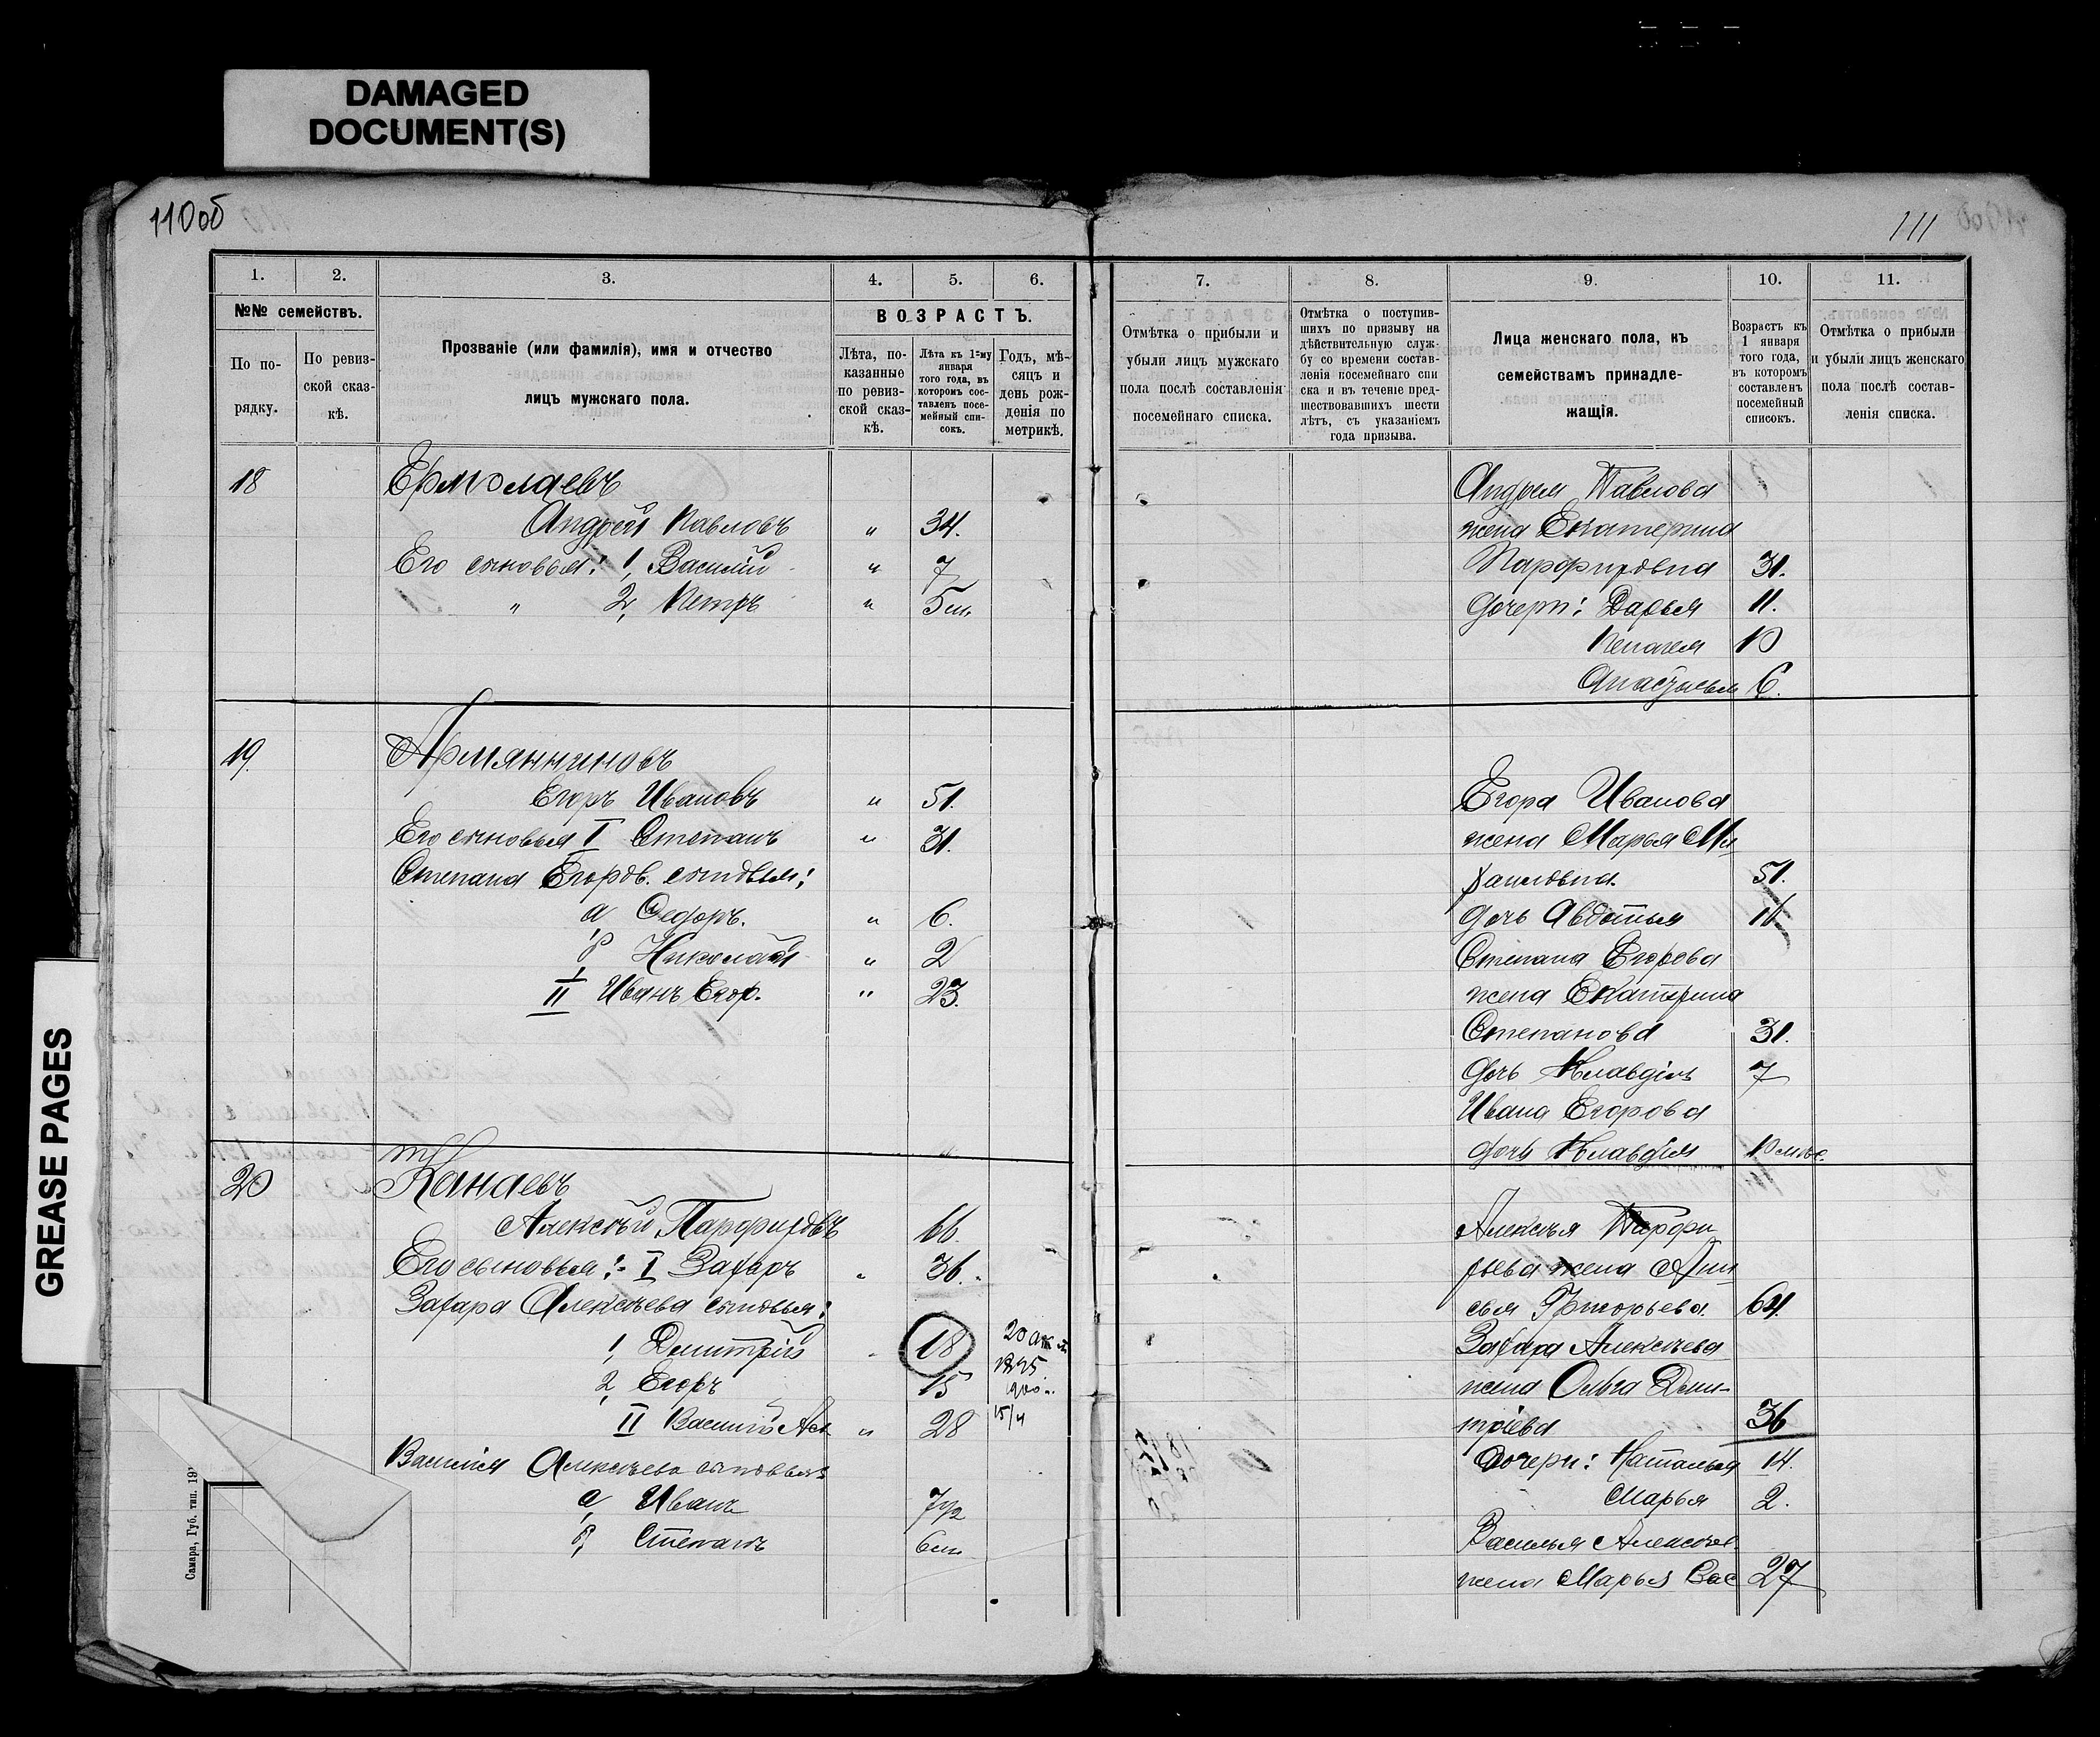 DAMAGED
DOCUMENT(S)
GREASE PAGES
110об
1. 2. 3. 4. 5. 6.
№№ семействъ.
По по-
рядку.
По ревиз-
ской сказ-
кѣ.
Прозваніе (или фамилія), имя и отчество
лицъ мужскаго пола.
ВОЗРАСТЪ.
Лѣта, по-
казанные
по ревиз-
ской сказ-
кѣ.
Лѣта къ 1-му
января
того года, въ
которомъ сос-
тавленъ посе-
мейный спи-
сокъ.
Годъ, мѣ-
сяцъ и
день рож-
денія по
метрикѣ.
18 Ермолаевъ
Андрей Павловъ " 34.
Его сыновья: 1, Василій " 7
" 2, Петръ " 5 м.
19. Армяниновъ
Егоръ Ивановъ " 51.
Его сыновья I Степанъ " 31.
Степана Егоров. сыновья:
а, Федоръ. " 6.
б, Николай " 2
II Иванъ Егор. " 23.
20 Канаевъ
Алексѣй Парфировъ 66.
Его сыновья: I Захаръ " 36.
Захара Алексѣева сыновья:
1, Дмитрій 18 20
2, Егоръ 15
II Василій Алек " 28 15/4
Василія Алексѣева сыновья
а, Иванъ 7 1/2
б, Степанъ 6 м.
Самара, Губ. тип. 19
111
7. 8. 9. 10. 11.
Отмѣтка о прибыли и
убыли лицъ мужскаго
пола послѣ составленія
посемейнаго списка.
Отмѣтка о поступив-
шихъ по призыву на
дѣйствительную служ-
бу со времени состав-
ленія посемейнаго спи
ска и въ теченіе пред-
шествовавшихъ шести
лѣтъ, съ указаніемъ
года призыва.
Лица женскаго пола, къ
семействамъ принадле-
жащія.
Возрастъ къ
1 января
того года,
въ которомъ
составленъ
посемейный
списокъ.
Отмѣтка о прибыли
и убыли лицъ женскаго
пола послѣ состав-
ленія списка.
Андрея Павлова
жена Екатерина
Парфировна 31.
дочери: Дарья 11.
Пелагея 10
Анастасья 6.
Егора Иванова
жена Марья Ми
хаиловна. 51.
дочь Авдотья 16
Степана Егорова
жена Екатерина
Степанова 31.
дочь Клавдія 7
Ивана Егорова
дочь Клавдія 10 мѣс.
Алексѣя Парфи
рьева жена Ани
сья Григорьева. 64.
Захара Алексѣева
жена Ольга Дми-
тріева 36
Дочери: Наталья 14.
Марья 2.
Василья Алексѣев.
жена Марья Вас 27